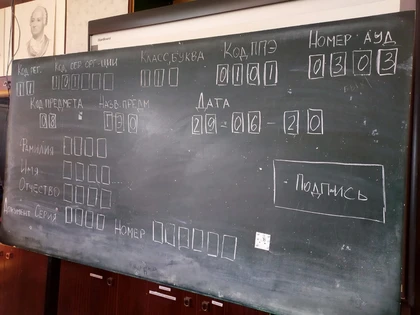 Код рег. Код обр орг-ции Класс, буква Код ППЭ Номер ауд.
0101 0303
Код предмета Назв. предм Дата
29-06-20
Фамилия
Имя
Отчество
Подпись
Документ Серия Номер